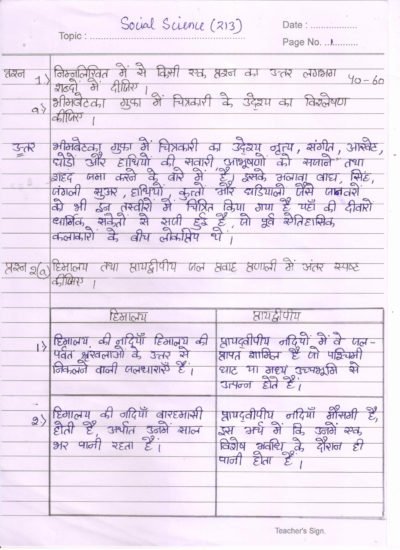 Social Science (213)
Topic :
Date :
Page No. 1
प्रश्न 1) निम्नलिखित में से किसी एक प्रश्न का उत्तर लगभग 40-60
शब्दों में दीजिए ।
a) भीमबेटका गुफा में चित्रकारी के उद्देश्य का विश्लेषण
कीजिए ।
उत्तर भीमबेटका गुफा में चित्रकारी का उद्देश्य नृत्य, संगीत, आखेट,
घोडो और हाथियों की सवारी, आभूषणो को सजाने तथा
शहद जमा करने के बारे में है। इसके अलावा बाघ, सिंह,
जंगली सुअर, हाथियों, कुत्तो और घडियालो जैसे जानवरो
को भी इन तस्वीरो में चित्रित किया गया है यहाँ की दीवारो
धार्मिक संकेतो से सजी हुई है, जो पूर्व ऐतिहासिक
कलाकारों के बीच लोकप्रिय थे ।
प्रश्न 2(a) हिमालय तथा प्रायद्वीपीय जल प्रवाह प्रणाली में अंतर स्पष्ट
कीजिए ।
हिमालय प्रायद्वीपीय
1) हिमालय की नदियाँ हिमालय की
पर्वत श्रृंखलाओ के उत्तर से
निकलने वाली जलधाराएँ है ।
प्रायद्वीपीय नदियों में वे जल-
शामिल है जो पश्चिमी
घाट या मध्य उच्चभूमि से
उत्पन्न होते है ।
2) हिमालय की नदियाँ बारहमासी
होती है, अर्थात उनमें साल
भर पानी रहता है ।
प्रायद्वीपीय नदियाँ मौसमी है,
इस अर्थ में कि उनमें एक
विशेष अवधि के दौरान ही
पानी होता है ।
Teacher's Sign.